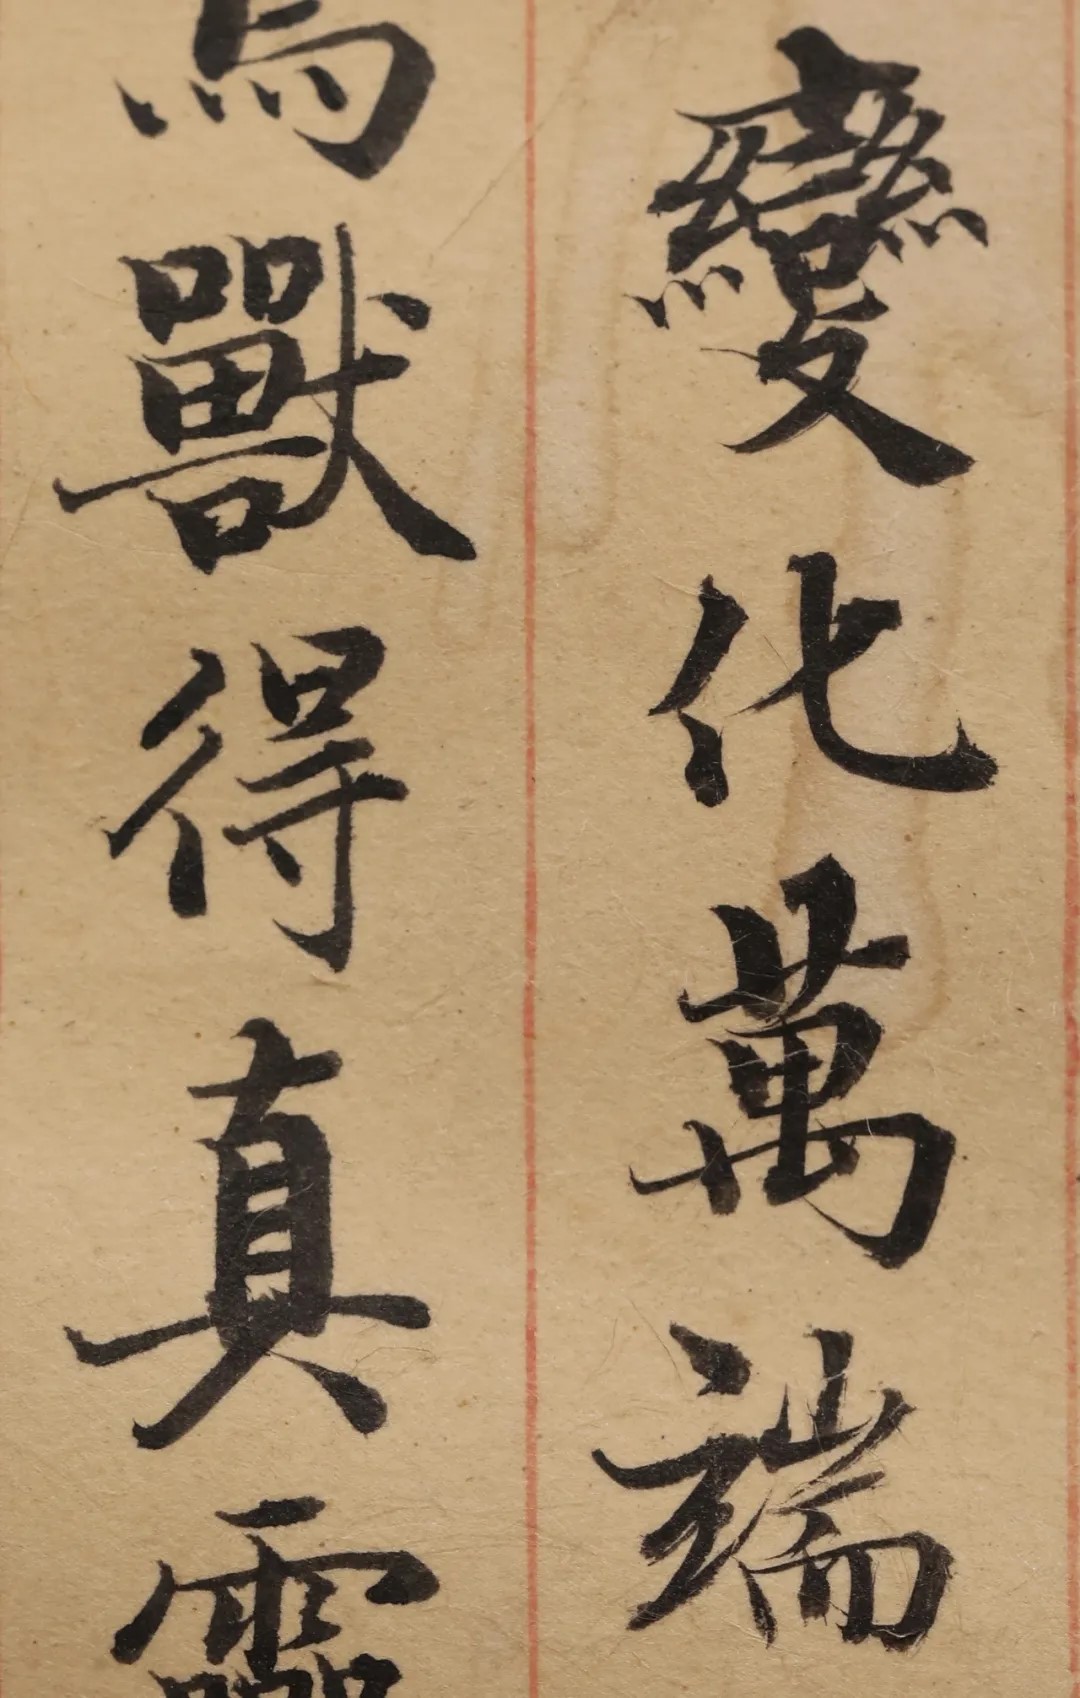 變化萬端
獸得真靈